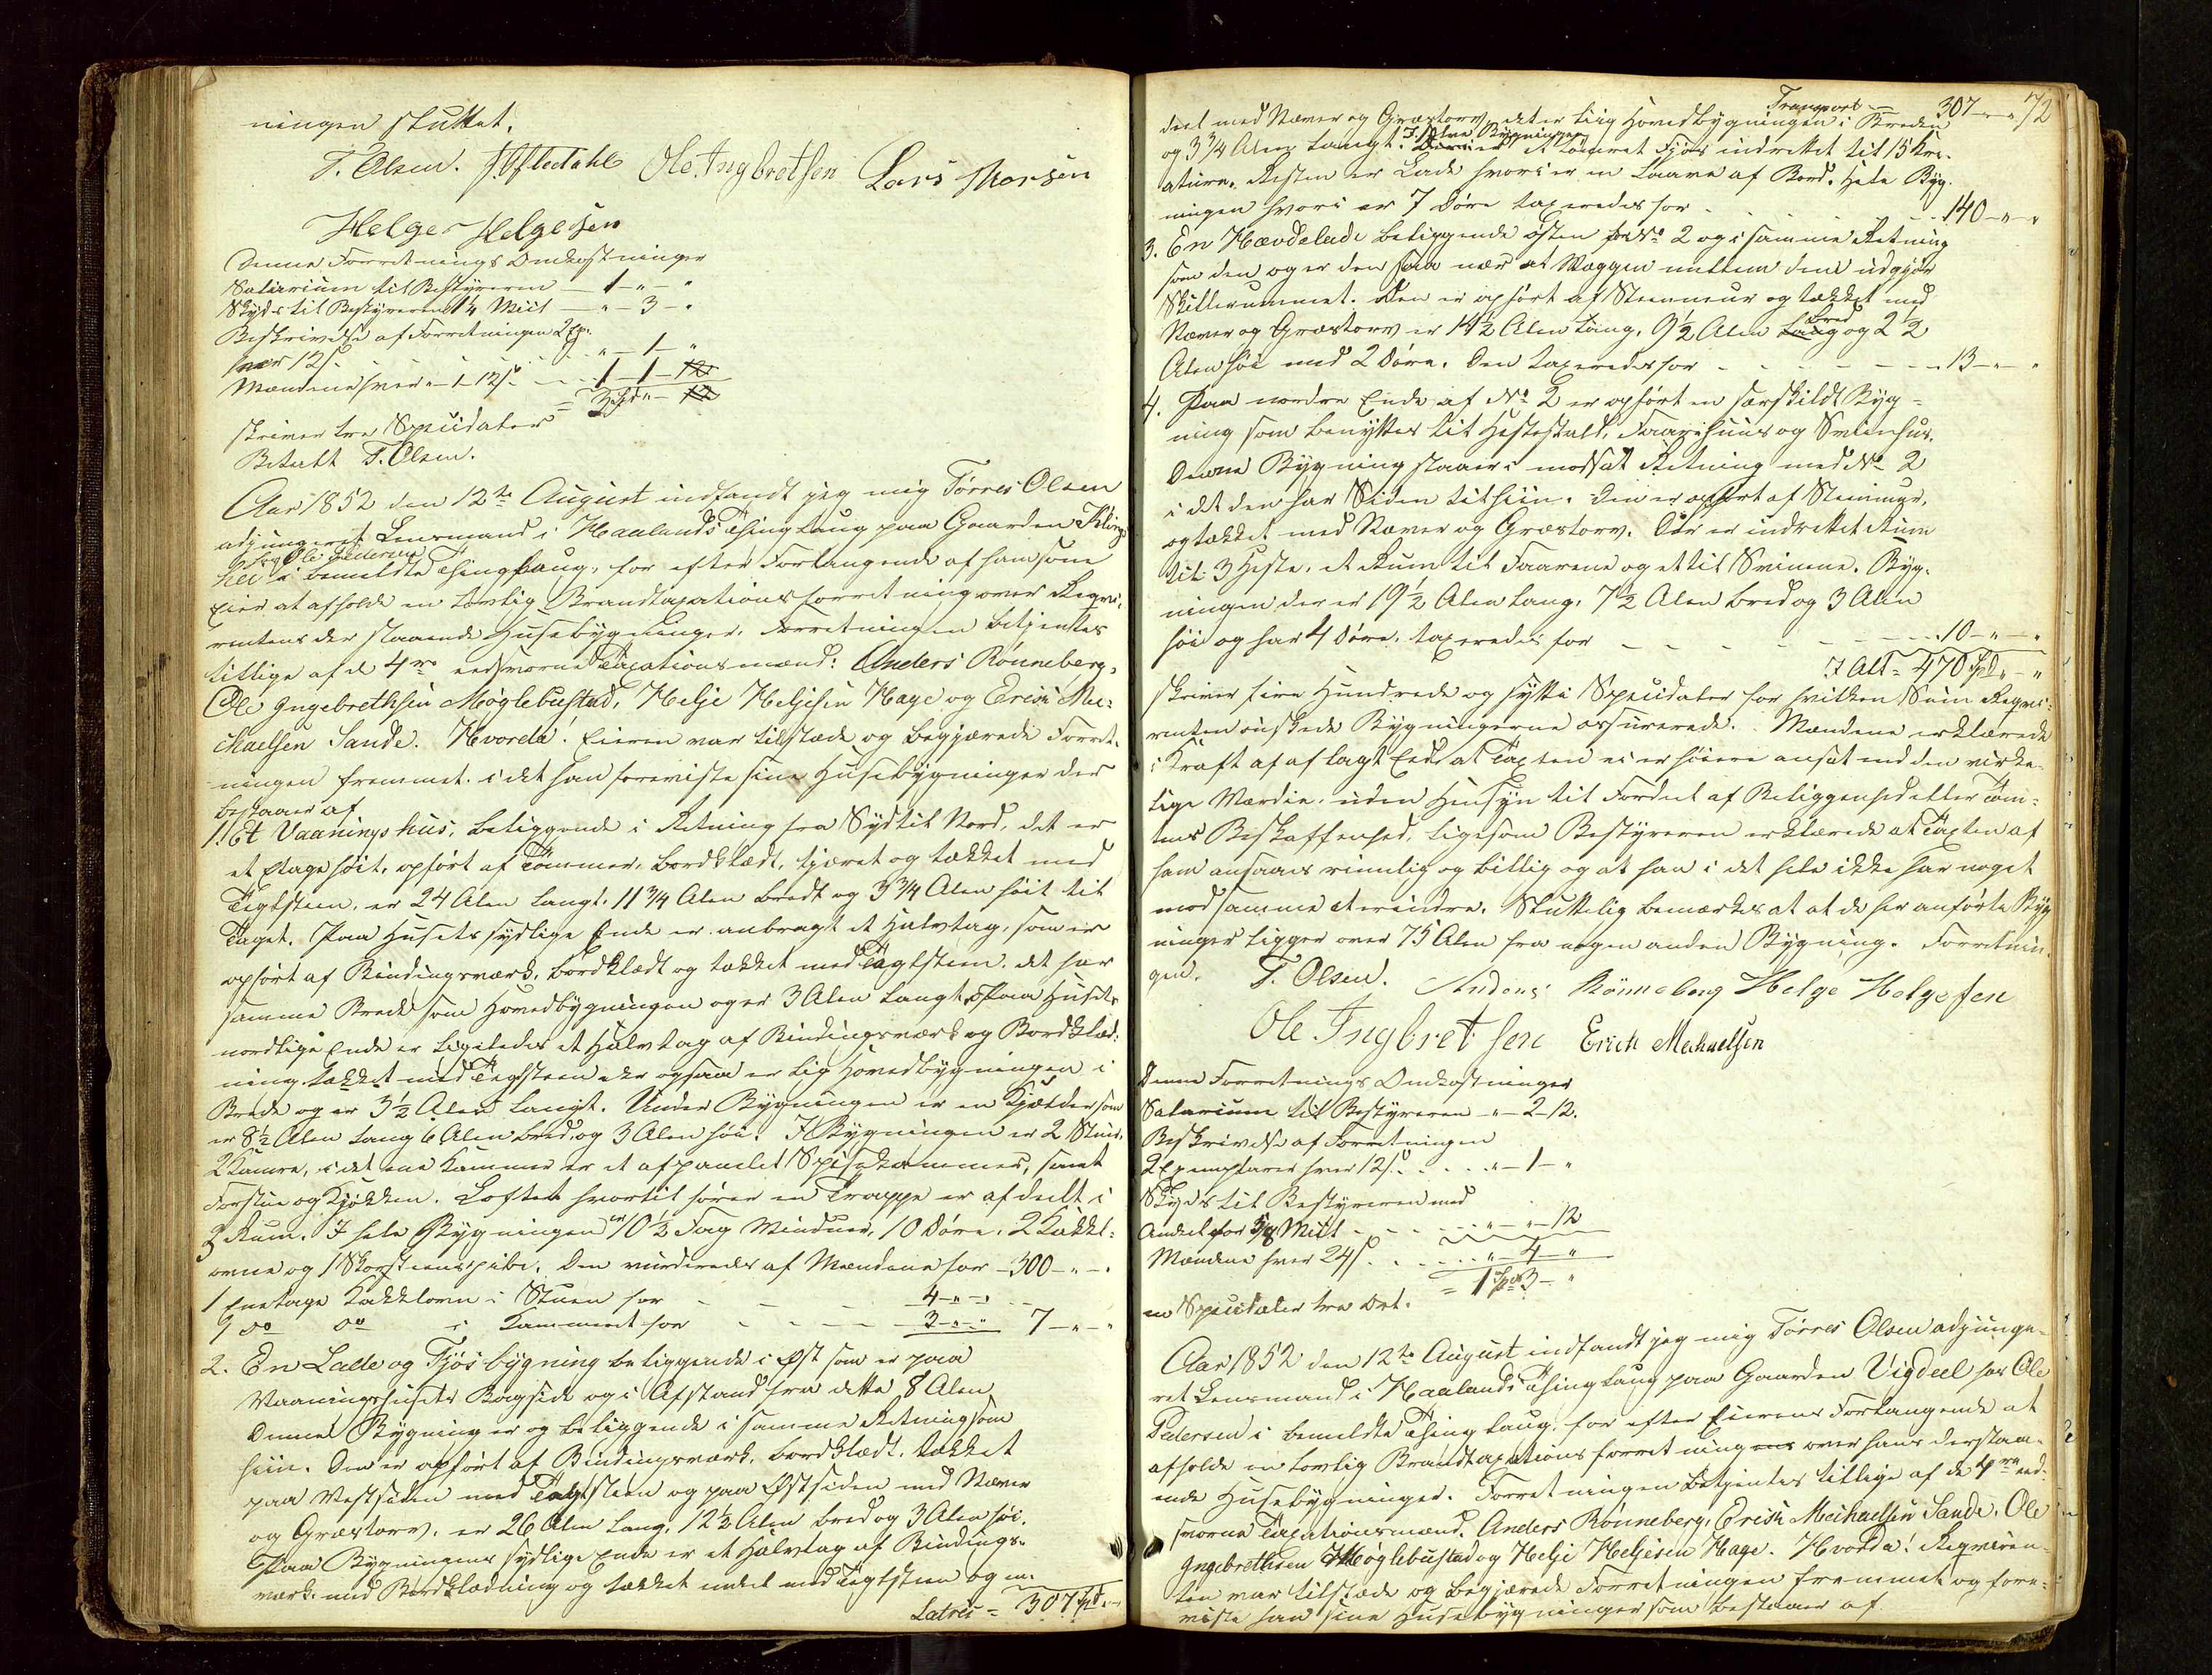 ningen sluttet.
T. Olsen. J. Gjelledahl Ole. Ingbretsen Lars Monsen
Helge Helgesen
Denne Forretnings Omkostninger
Salarium til Bestyreren — 1 - " - "
Skyds til Bestyreren 1¼ Miil — " - 3 - "
Beskrivelse af Forretningen 2 Ex.
hver 12 s. " - 1 - "
Mændene hver " - 1 - 12 s. 1 - 1 - 12
= 3 Spd " - 12
skriver tre Speciedaler
Betalt T. Olsen.
Aar 1852 den 12te August indfandt jeg mig Tørres Olsen
adjungeret Lensmand i Haalands Thinglaug paa Gaarden Kling-
hos Ole Pedersen
hei i bemeldte Thinglaug, for efter Forlangende af ham som
Eier at afholde en lovlig Brandtaxationsforretning over Reqvi-
rentens der staaende Husebygninger. Forretningen betjentes
tillige af de 4re eedsvorne Taxationsmænd: Anders Rønneberg,
Ole Ingebrethsen Møglebustad, Helje Heljesen Hage og Erich Me-
ichaelsen Sande. Hvorda! Eieren var tilstæde og begjærede Forret-
ningen fremmet i det han foreviste sine Husebygninger der
bestaaer af
1. Et Vaaningshus, beliggende i Retning fra Syd til Nord, det er
et Etage høit, opført af Tømmer, bordklædt, tjæret og tækket med
Teglsteen, er 24 Alen langt, 11¾ Alen bredt og 3¾ Alen høit til
Taget. Paa Husets sydlige Ende er anbragt et Halvtag, som er
opført af Bindingsværk, bordklædt og tækket med Taglsteen, det har
samme Brede som Hovedbygningen og er 3 Alen langt. Paa Husets
nordlige Ende er ligeledes et Halvtag af Bindingsværk og Bordklæd-
ning tækket med Teglsteen der ogsaa er lig Hovedbygningen i
Brede og er 3½ Alen langt. Under Bygningen er en Kjelder som
er 8½ Alen lang 6 Alen bred, og 3 Alen høi. I Bygningen er 2 Stuer,
2 Kamre, i det ene Kammer er et afpanelet Spisekammer, samt
Forstue og Kjøkken. Loftet hvortil fører en Trappe er afdeelt i
3 Rum. I hele Bygningen er 10½ Fag Vinduer, 10 Døre, 2 Kakkel-
ovne og 1 Skorsteenspibe. Den vurderedes af Mændene for — 300 - " - "
1 Eenetage Kakkelovn i Stuen for — 4 - " - "
1 do do i Kammeret for — 3 - " - " 7 - " - "
2. En Lade og Fjøs bygning beliggende i Øst som er paa
Vaaningshusets Bagside og i Afstand fra dette 8 Alen
Denne Bygning er og beliggende i samme Retning som
hiin. Den er opført af Bindingsværk, bordklædt, tækket
paa Vestsiden med Taglsteen og paa Østsiden med Næver
og Græstorv, er 26 Alen lang, 12½ Alen bred og 3 Alen høi.
Paa Bygningens sydlige Ende er et Halvtag af Bindings-
værk med Bordklædning og tækket endeel med Teglsteen og en
Latres = 307 Spd " - "
Transport — 307 - " - " 72
deel med Næver og Græstorv, det er liig Hovedbygningen i Breden
og 3¾ Alen langt. I selve Bygningen er et tømret Fjøs indrettet til 15 Kre-
ature. Resten er Lade hvori er en Laave af Bord. Hele Byg-
ningen hvori er 7 Døre taxeredes for — 140 - " - "
3. En Hævdelade beliggende østen for No 2 og i samme Retning
som den og er den saa nær at Væggen mellem dem udgjør
Skillerummet. Den er opført af Steenmuur og tækket med
Næver og Græstorv er 14½ Alen lang, 9½ Alen bred og 2½
Alen høi med 2 Døre. Den taxeredes for — 13 - " - "
4. Paa nordre Ende af No 2 er opført en særskildt Byg-
ning som benyttes til Hestestald, Faarehuus og Sviinhus.
Denne Bygning staaer i modsat Retning med No 2
i det den har Siden til hiin. Den er opført af Steenmuur,
og tækket med Næver og Græstorv. Der er indrettet Rum
til 3 Heste, et Rum til Faarene og et til Svinene. Byg-
ningen der er 19½ Alen lang, 7½ Alen bred og 3 Alen
høi og har 4 Døre, taxeredes for — 10 - " - "
I Alt = 470 Spd " - "
skriver fire Hundrede og sytti Speciedaler for hvilken Sum Reqvi-
renten ønskede Bygningerne assurerede. Mændene erklærede
i Kraft af aflagt Eed at Taxten ei er høiere ansat end den virke-
lige Værdie, uden Hensyn til Fordeel af Beliggenhed eller Tom-
tens Beskaffenhed, ligesom Bestyreren erklærede at Taxten af
ham ansaaes rimelig og billig og at han i det hele ikke har noget
mod samme at erindre. Sluttelig bemærkes at at de her anførte Byg-
ninger ligger over 75 Alen fra nogen anden Bygning. Forretnin-
gen. T. Olsen. Anders Rönneberg Helge Helgesen
Ole Ingbretsen Erich Mechaelsen
Denne Forretnings Omkostninger
Salarium til Bestyreren - " - 2 - 12.
Beskrivelse af Forretningen
2 Exemplarer hver 12 s. " - 1 - "
Skyds til Bestyreren med
Andeel for 5/8 Miil " - " - 12
Mændene hver 24 s " - 4 - "
= 1 Spd 3 - "
en Speciedaler tre Ort.
Aar 1852 den 12te August indfandt jeg mig Tørres Olsen adjunge-
ret Lensmand i Haalands Thinglaug paa Gaarden Vigdeel hos Ole
Pedersen i bemeldte Thinglaug, for efter Eierens Forlangende at
afholde en lovlig Brandtaxationsforretning over hans derstaa-
ende Husebygninger. Forretningen betjentes tillige af de 4re eed-
svorne Taxationsmænd. Anders Rønneberg, Erich Meichaelsen Sande, Ole
Ingebrethsen Møglebustad og Helje Heljesen Hage. Hvorda! Reqviren-
ten var tilstæde og begjærede Forretningen fremmet og fore-
viste han sine Husebygninger som bestaaer af